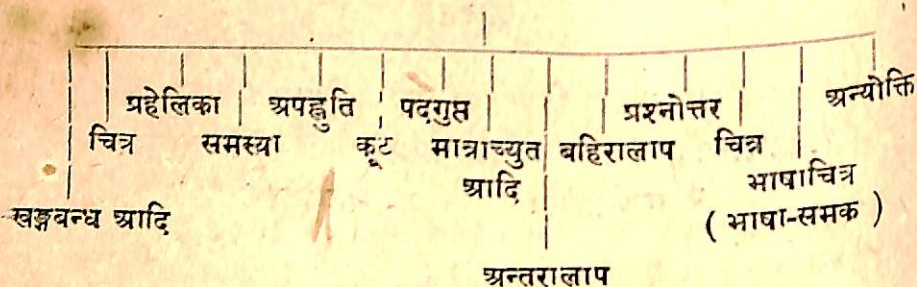 प्रहेलिका अपह्नुति पदगुप्त प्रश्नोत्तर अन्योक्ति
चित्र समस्या कूट मात्राच्युत बहिरालाप चित्र
आदि भाषाचित्र
खड्गबन्ध आदि ( भाषा-समक )
अन्तरालाप